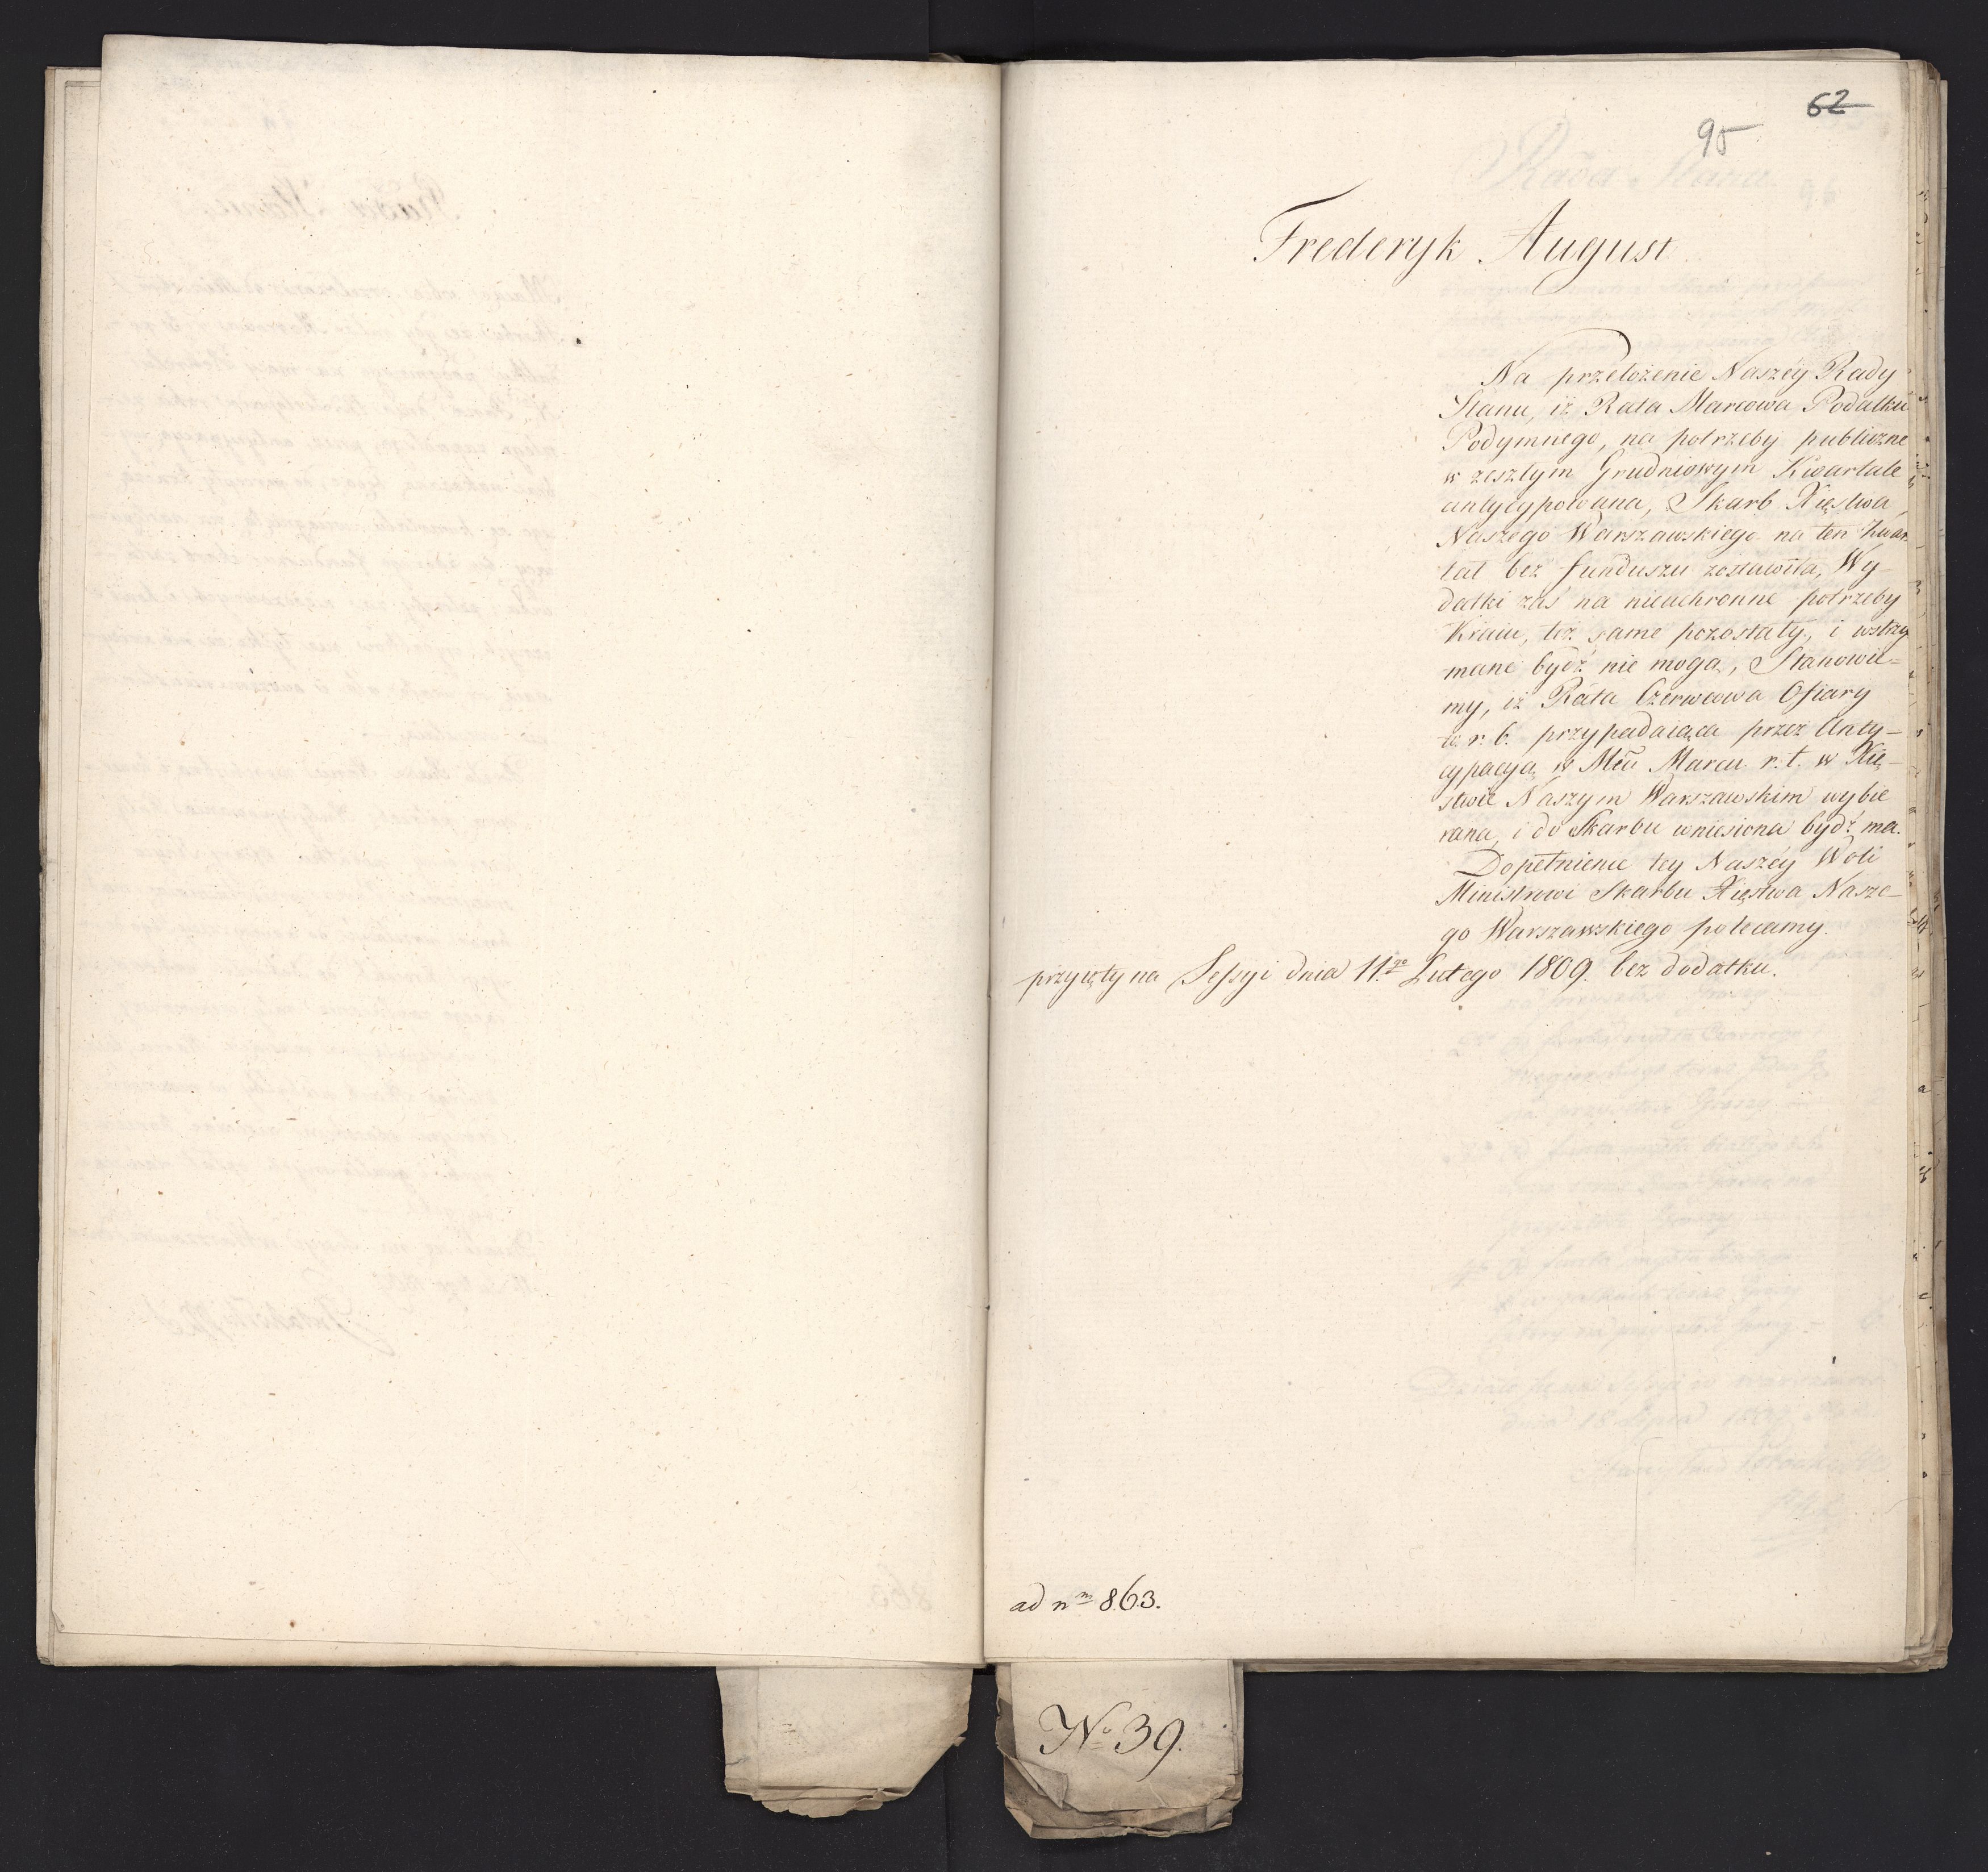 62
95
Frederyk August
Na przełożenie Naszéy Rady
Stanu, iż Rata Marcowa Podatku
Podymnego, na potrzeby publiczne
w zeszłym Grudniowym Kwartale
antycypowana, Skarb Xięstwa
Naszego Warszawskiego na ten Kwar
tał bez funduszu zostawiła, Wy-
datki zaś na nieuchronne potrzeby
Kraiu, też same pozostały, i wstrzy
mane bydź nie mogą, Stanowie=
my, iż Rata Czerwcowa Ofiary
w r. b. przypadaiąca przez Anty-
cypacyą w Mcu Marcu r. t. w Xię-
stwie Naszym Warszawskim wybie
rana, i do Skarbu wniesiona bydź ma.
Dopełnienie tey Naszéy Woli
Ministrowi Skarbu Xięstwa Nasze-
go Warszawskiego polecamy.
przyięty na Sessyi dnia 11.go Lutego 1809. bez dodatku.
ad nm 863.
No 39.